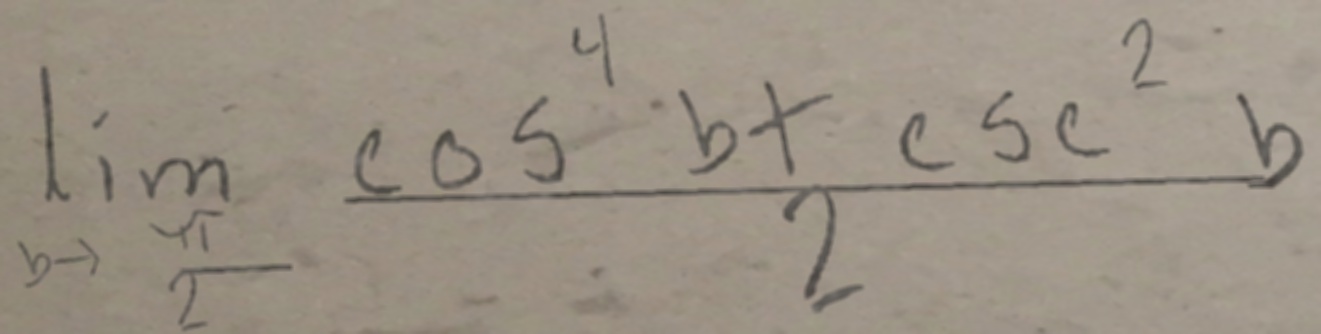 lim_{b→\frac{π}{2}} \frac{cos^4 b + csc^2 b}{2}